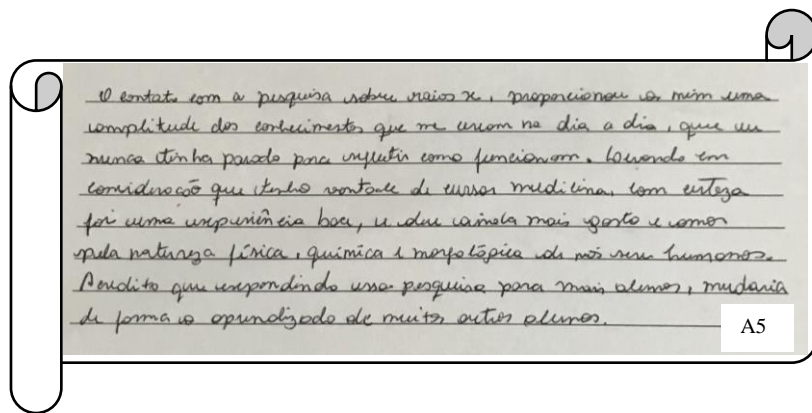 O contato com a pesquisa sobre raios x, proporcionou a mim uma
complitude dos conhecimentos que me cercam no dia a dia, que eu
nunca tinha parado pra refletir como funcionam. Levando em
consideração que tenho vontade de cursar medicina, com certeza
foi uma experiência boa, e deu ainda mais gosto e amor
pela natureza física, química e morfológica de nós seres humanos.
Acredito que expondindo essa pesquisa para mais alunos, mudaria
de forma o aprendizado de muitos outros alunos.
A5